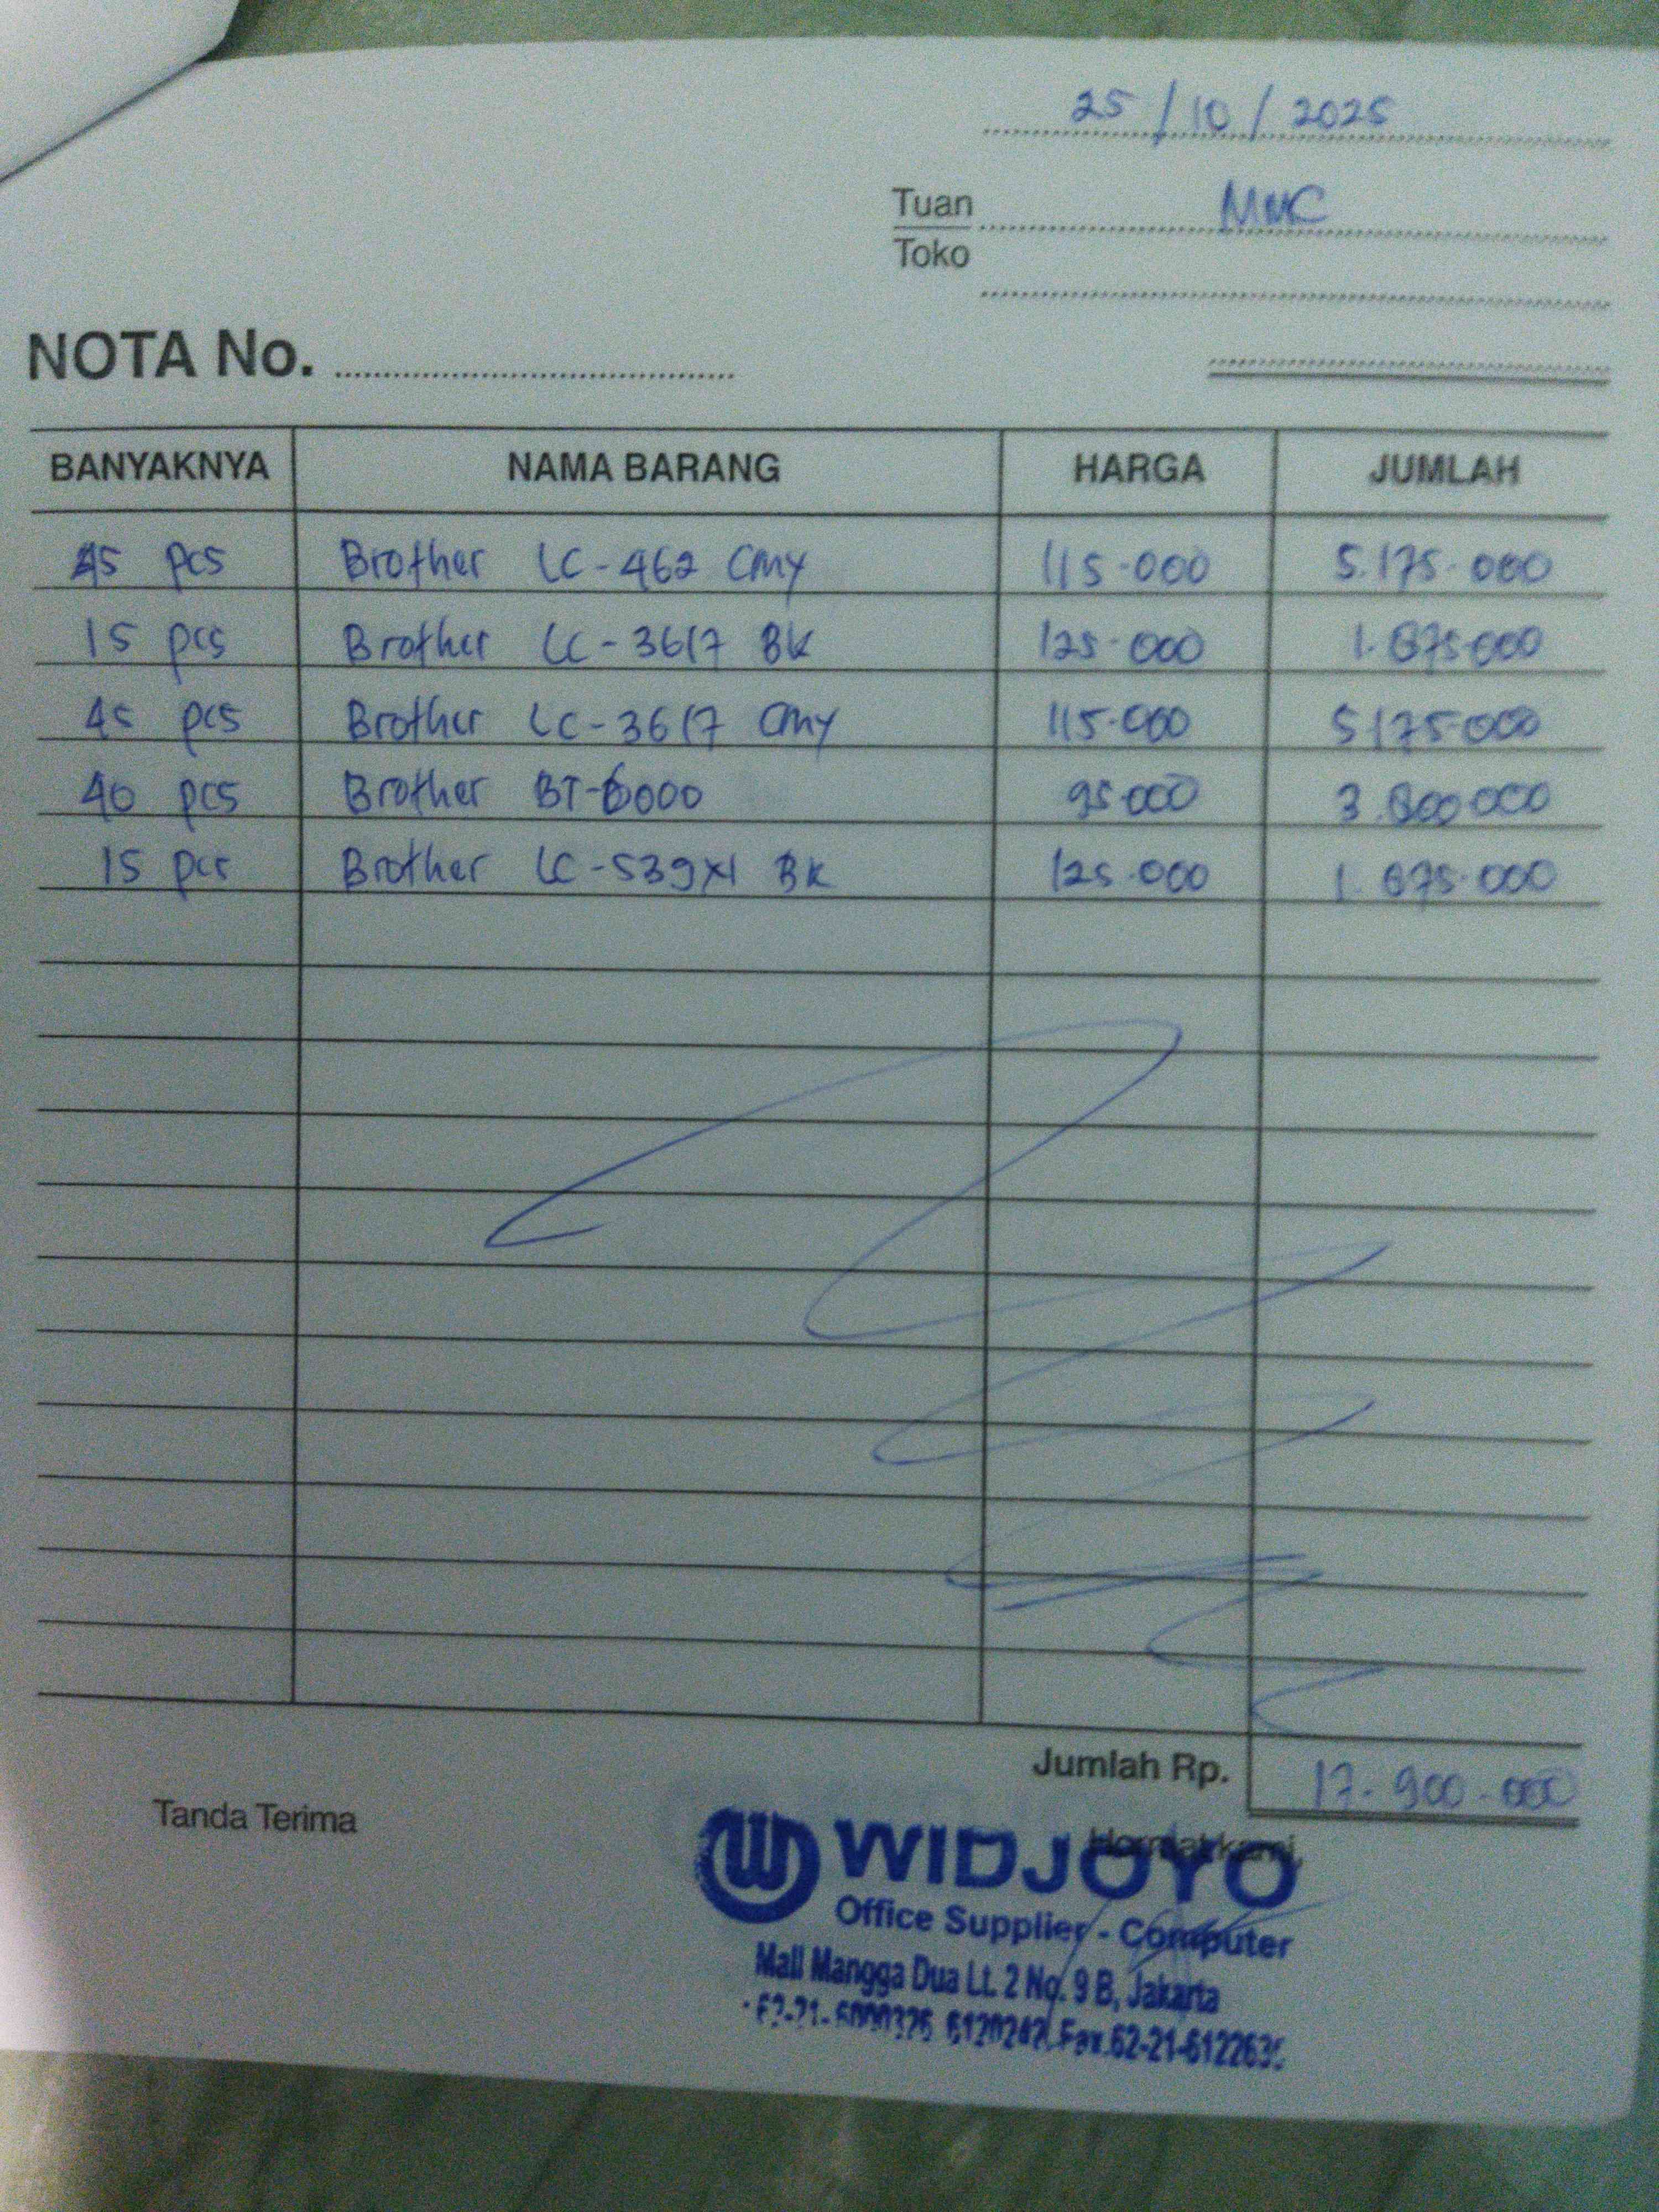 25 / 10 / 2025
Tuan MNC
Toko
NOTA No.
BANYAKNYA NAMA BARANG HARGA JUMLAH
45 pcs Brother LC-462 CMY 115.000 5.175.000
15 pcs Brother LC-3617 BK 125.000 1.875.000
45 pcs Brother LC-3617 CMY 115.000 5.175.000
40 pcs Brother BT-6000 95.000 3.800.000
15 pcs Brother LC-539XL BK 125.000 1.875.000
Jumlah Rp. 17.900.000
Tanda Terima Hormat kami,
WIDJOYO
Office Supplier - Computer
Mall Mangga Dua Lt. 2 No. 9 B, Jakarta
Fax.